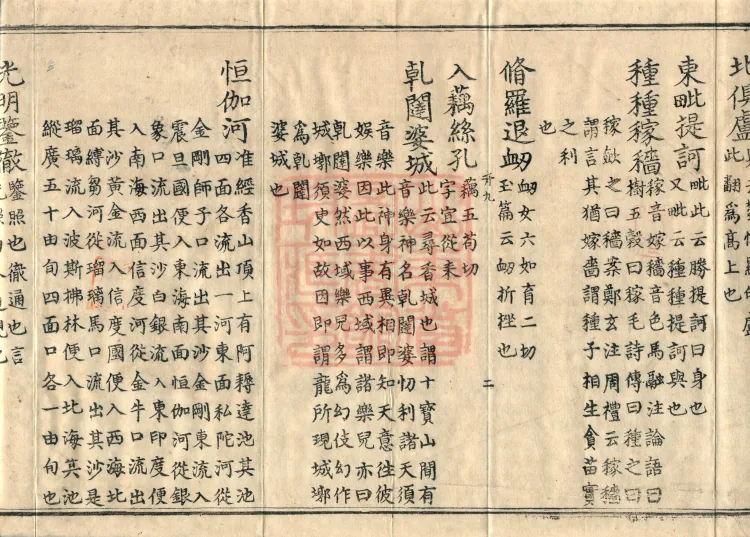 北俱盧
此翻爲高上也
東毗提訶
毗此云勝提訶曰身也
又毗云種種提訶與也
種種稼穡
稼音嫁穡音色馬融注論語曰
樹五穀曰稼毛詩傳曰種之曰
稼斂之曰穡案鄭玄注周禮云稼穡
謂言其猶嫁嗇謂種子相生貪苗實
之利
也
脩羅退衂
衂女六如育二切
玉篇云衂折挫也
卅九 二
入藕絲孔
藕五苟切
字宜從耒
乹闥婆城
此云尋香城也謂十寶山間有
音樂神名乹闥婆忉利諸天須
音樂此神身有異相即知天意往彼
娛樂因此以事西域謂諸樂兒亦曰
乹闥婆然西域樂兒多爲幻伎幻作
城墎須臾如故因即謂龍所現城墎
爲乹闥
婆城也
恒伽河
准經香山頂上有阿耨達池其池
四面各流出一河東面私陀河從
金剛師子口流出其沙金剛東流入
震旦國便入東海南面恒伽河從銀
象口流出其沙白銀流入東印度便
入南海西面信度河從金牛口流出
其沙黃金流入信度國便入西海北
面縛芻河從瑠璃馬口流出其沙是
瑠璃流入波斯拂林便入北海其池
縱廣五十由旬四面口各一由旬也
光明鑒徹
鑒照也徹通也言